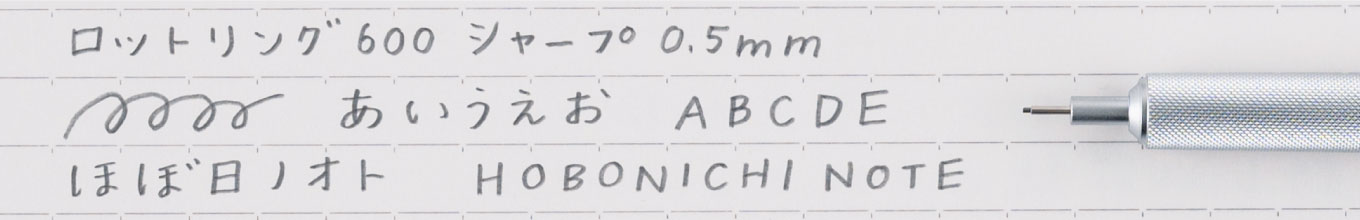 ロットリング600 シャープ 0.5mm
あいうえお ABCDE
ほぼ日ノオト HOBONICHI NOTE